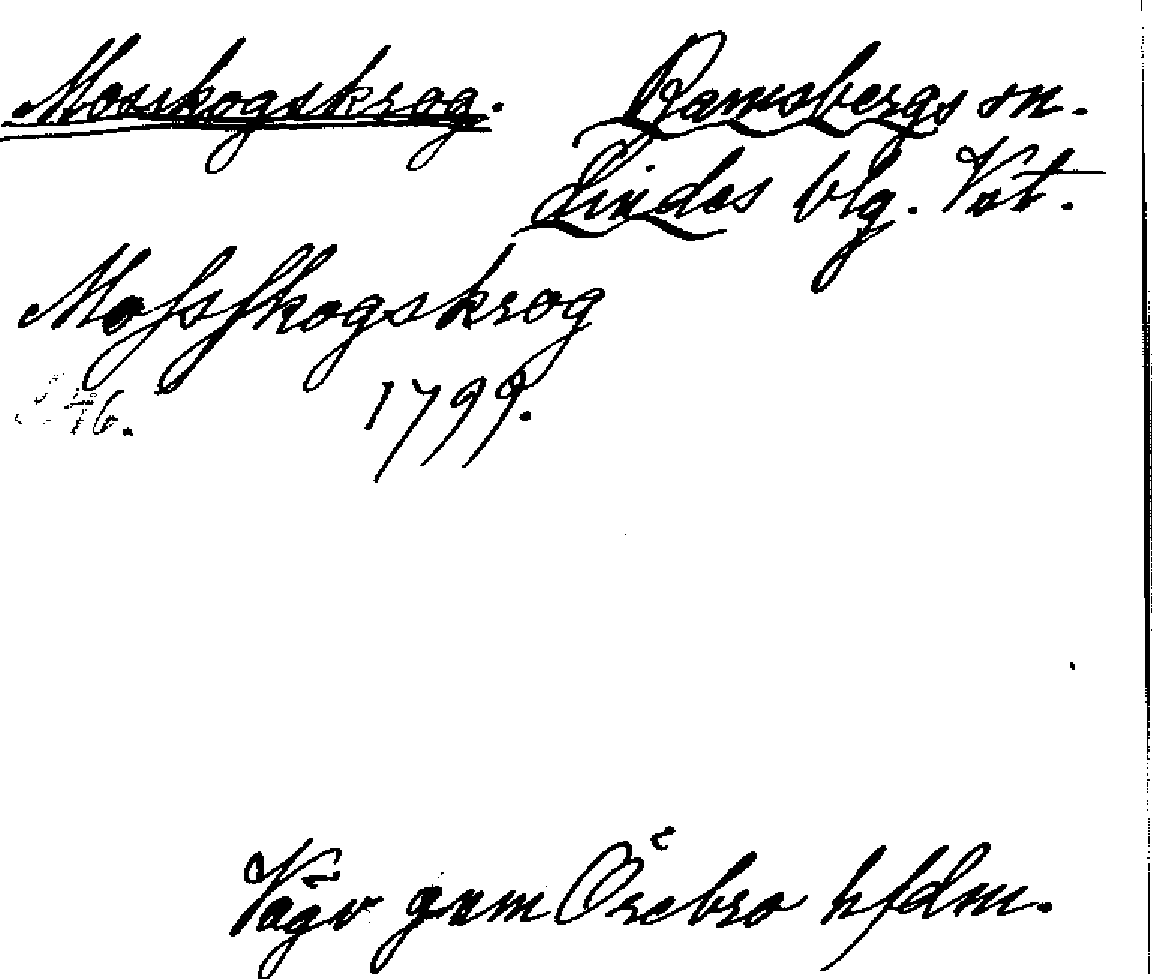 Mosskogskrog. Ramsbergs sn.
Lindes blg. Vstm.
Mossskogskrog
S. 46. 1799.
Vägv genom Örebro hfdm.